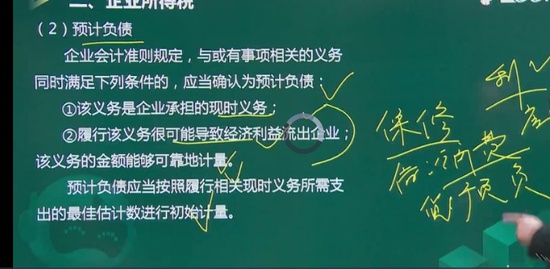 二、企业所得税
（2）预计负债
企业会计准则规定，与或有事项相关的义务
同时满足下列条件的，应当确认为预计负债：
①该义务是企业承担的现时义务；
②履行该义务很可能导致经济利益流出企业；
该义务的金额能够可靠地计量。
预计负债应当按照履行相关现时义务所需支
出的最佳估计数进行初始计量。
保修
费